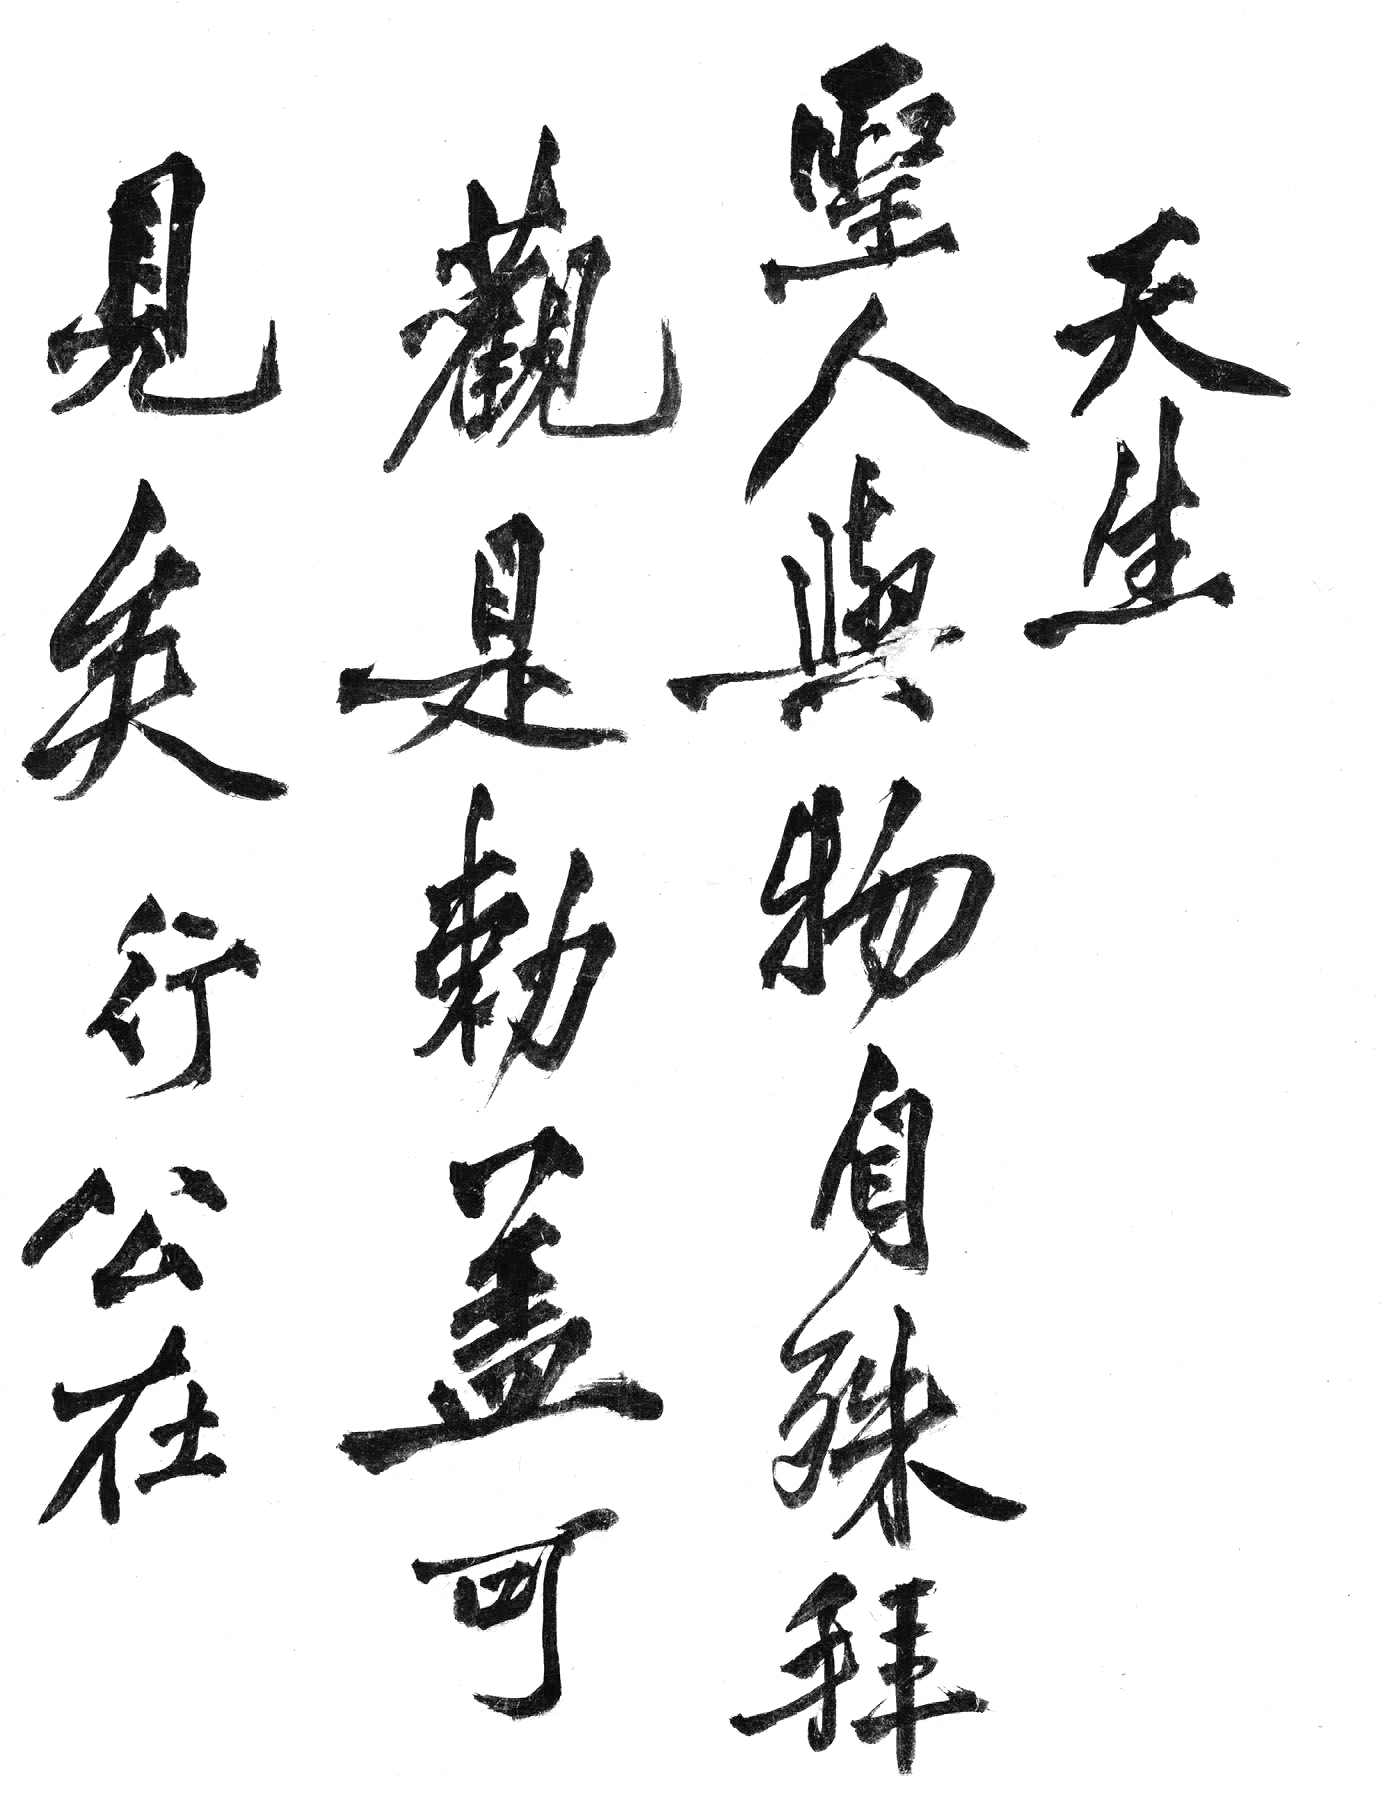 天生
聖人與物自殊拜
觀是勅蓋可
見矣行公在